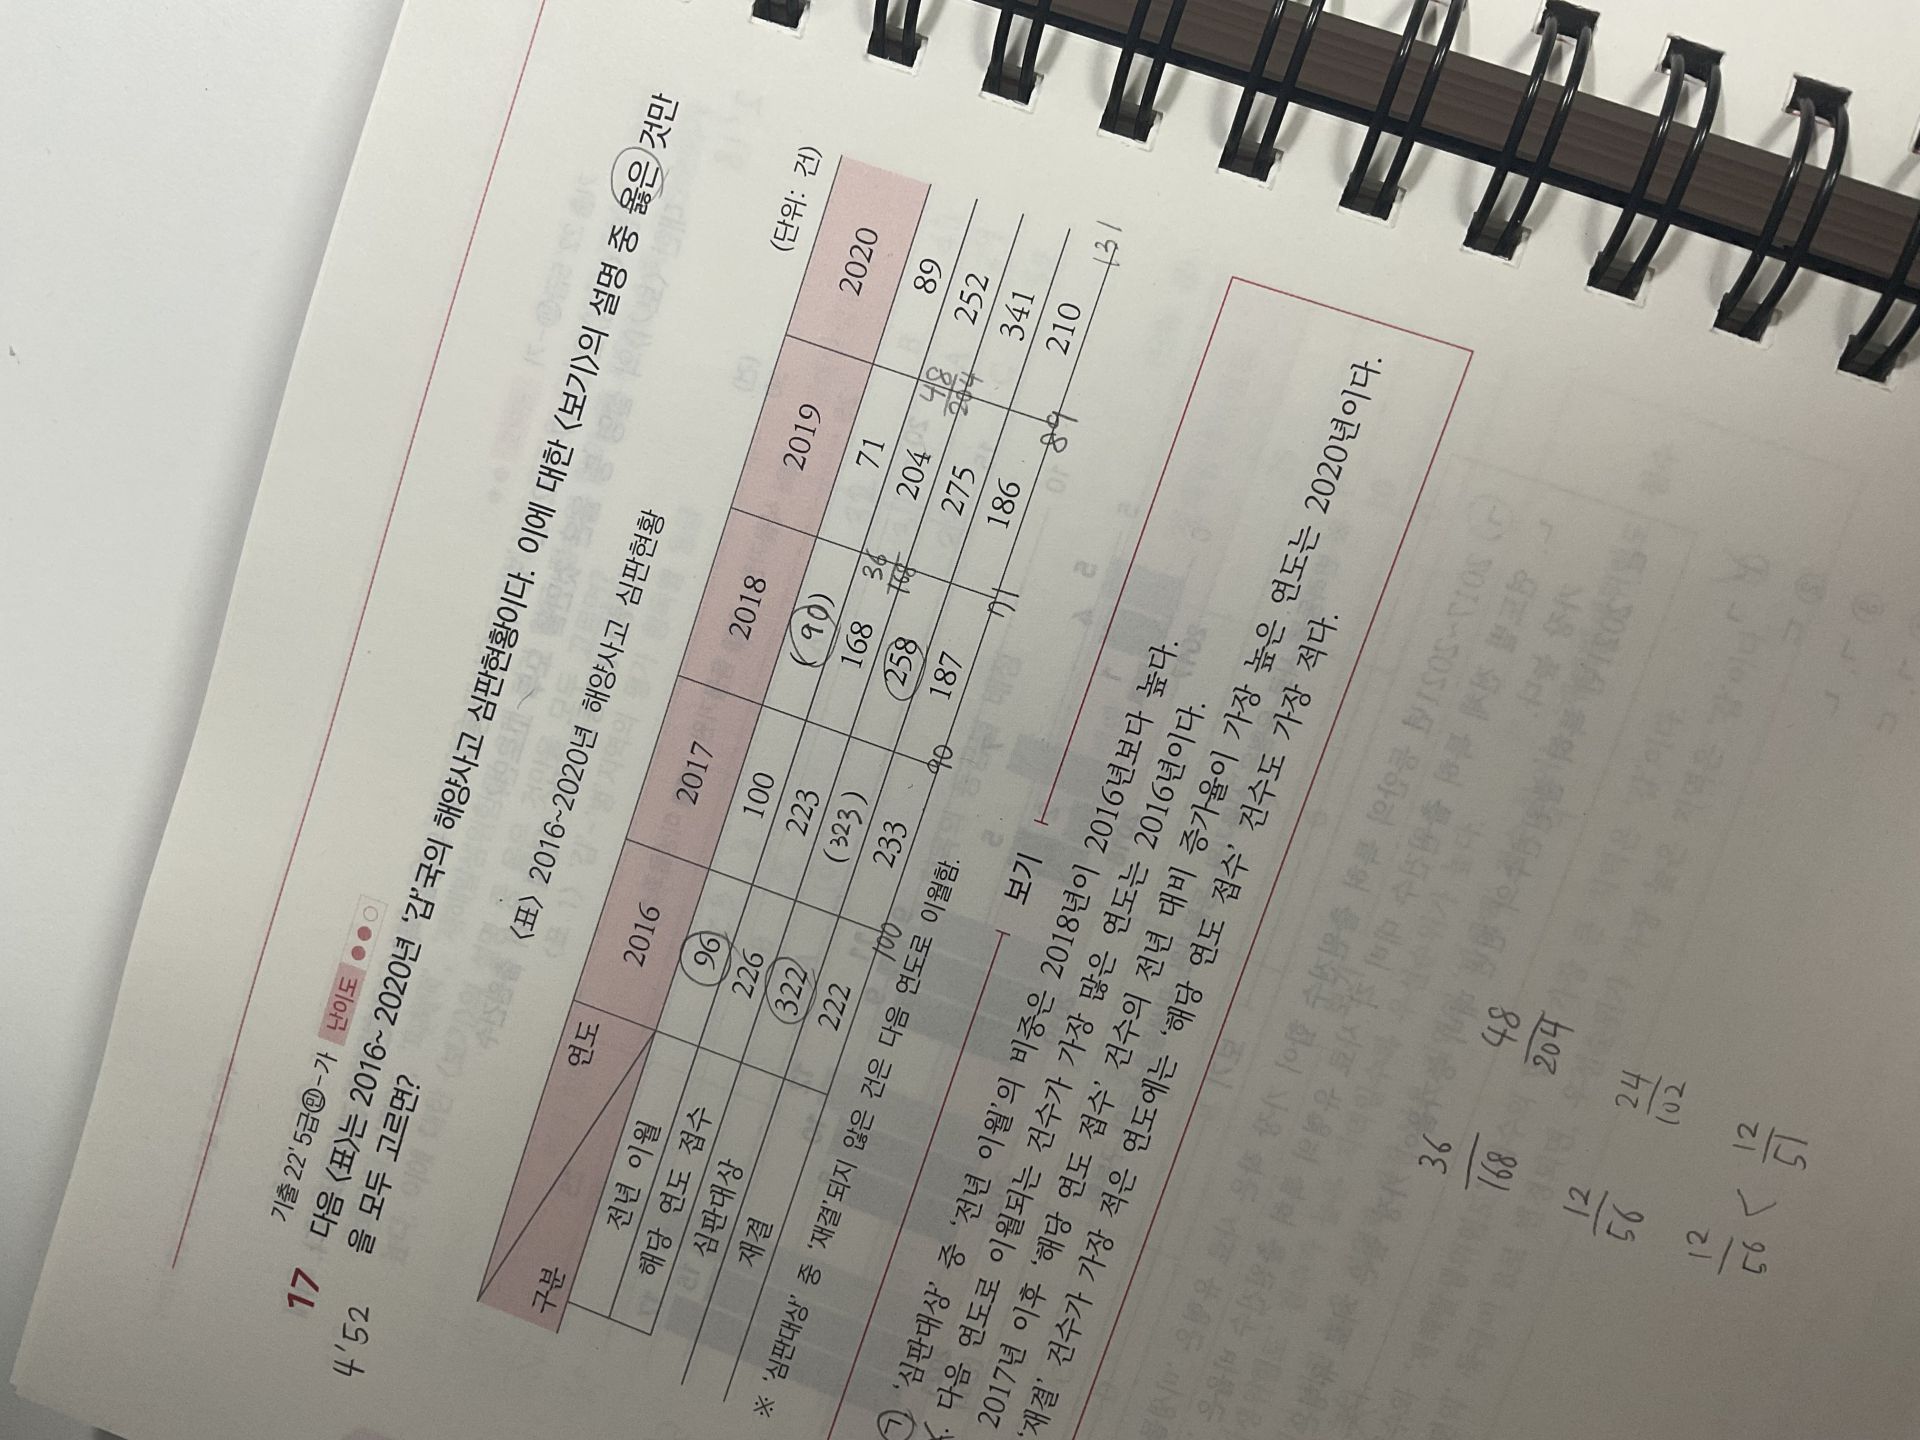 기출 22' 5급㉫-가 난이도 ●●○
17 다음 <표>는 2016~2020년 '갑'국의 해양사고 심판현황이다. 이에 대한 <보기>의 설명 중 옳은 것만
4'52 을 모두 고르면?
<표> 2016~2020년 해양사고 심판현황
(단위: 건)
구분 연도 2016 2017 2018 2019 2020
전년 이월 96 100 (90) 71 89
해당 연도 접수 226 223 168 204 252
심판대상 322 (323) 258 275 341
재결 222 233 187 186 210
100 90 71 89 131
36/168 48/204
※ '심판대상' 중 '재결'되지 않은 건은 다음 연도로 이월함.
보기
ㄱ '심판대상' 중 '전년 이월'의 비중은 2018년이 2016년보다 높다.
. 다음 연도로 이월되는 건수가 가장 많은 연도는 2016년이다.
2017년 이후 '해당 연도 접수' 건수의 전년 대비 증가율이 가장 높은 연도는 2020년이다.
'재결' 건수가 가장 적은 연도에는 '해당 연도 접수' 건수도 가장 적다.
36/168 48/204
12/56 24/102
12/56 < 12/51